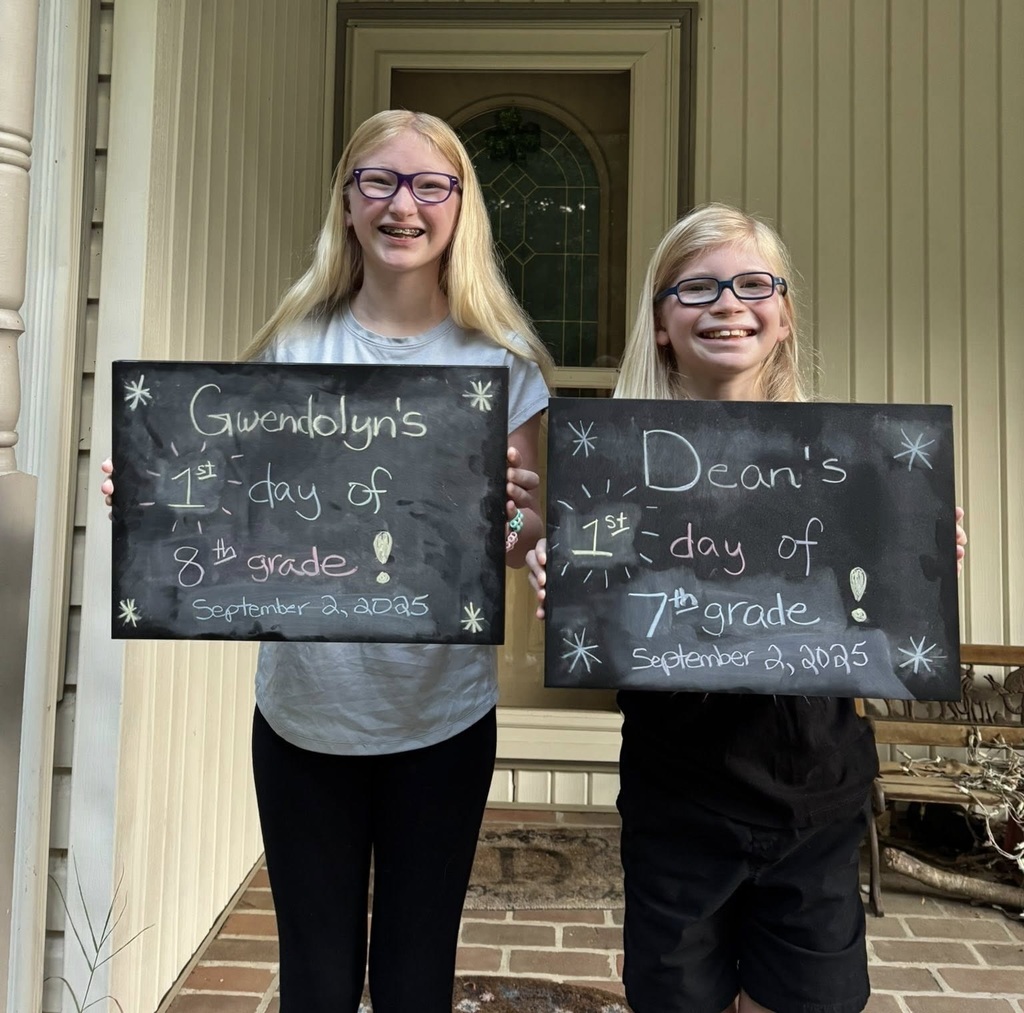 Gwendolyn's
1st day of
8th grade!
September 2, 2025
Dean's
1st day of
7th grade!
September 2, 2025
D